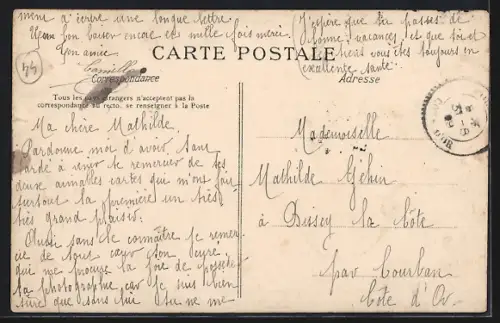 Ma chère Mathilde,
Pardonne moi d'avoir tant
tardé à venir te remercier de tes
deux aimables cartes qui m'ont fait
surtout la première un très
très grand plaisir.
Aussi sans le connaître je remer-
cie de tout cœur ton
qui me procure la joie de posséder
ta photographie car je suis bien
sûre que sans lui tu ne me
ment à écrire une longue lettre
bon baiser encore et mille fois merci.
Ton amie
Camille
J'espère que tu passes de
bonnes vacances, et que toi et
vous êtes toujours en
excellente santé.
44
CARTE POSTALE
Correspondance
Adresse
Tous les pays étrangers n'acceptent pas la
correspondance au recto, se renseigner à la Poste
Mademoiselle
Mathilde
à Dissey la Côte
par Courban
Côte d'Or